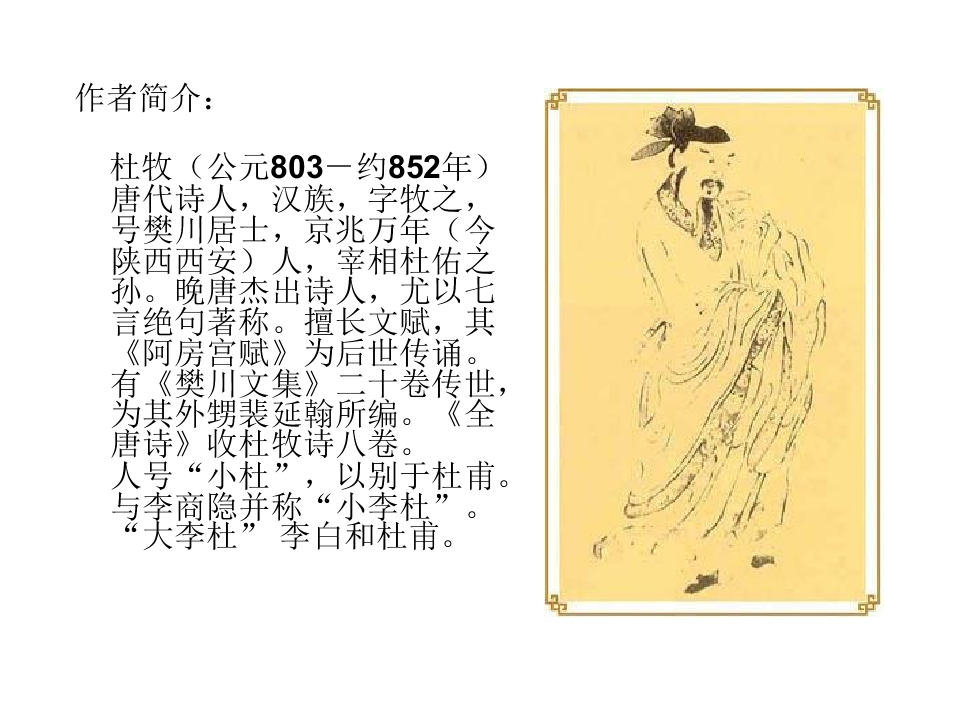 作者简介：
杜牧（公元803－约852年）
唐代诗人，汉族，字牧之，
号樊川居士，京兆万年（今
陕西西安）人，宰相杜佑之
孙。晚唐杰出诗人，尤以七
言绝句著称。擅长文赋，其
《阿房宫赋》为后世传诵。
有《樊川文集》二十卷传世，
为其外甥裴延翰所编。《全
唐诗》收杜牧诗八卷。
人号“小杜”，以别于杜甫。
与李商隐并称“小李杜”。
“大李杜” 李白和杜甫。